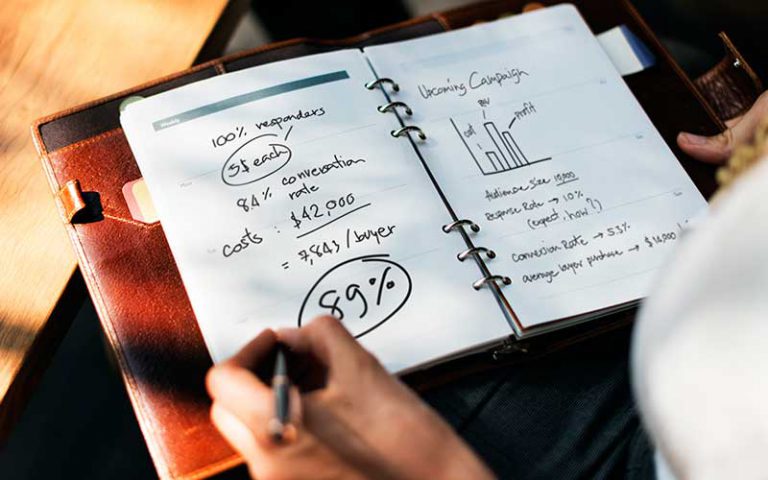 Weekly
100% responders
5$ each
84% conversation
rate
costs : $42,000
= 7,843 / buyer
89%
Upcoming Campaign
cost
REV
Profit
Audience size 10,000
response Rate → 10%
(expect. how?)
conversion Rate → 5.3%
average buyer purchase → $14,000